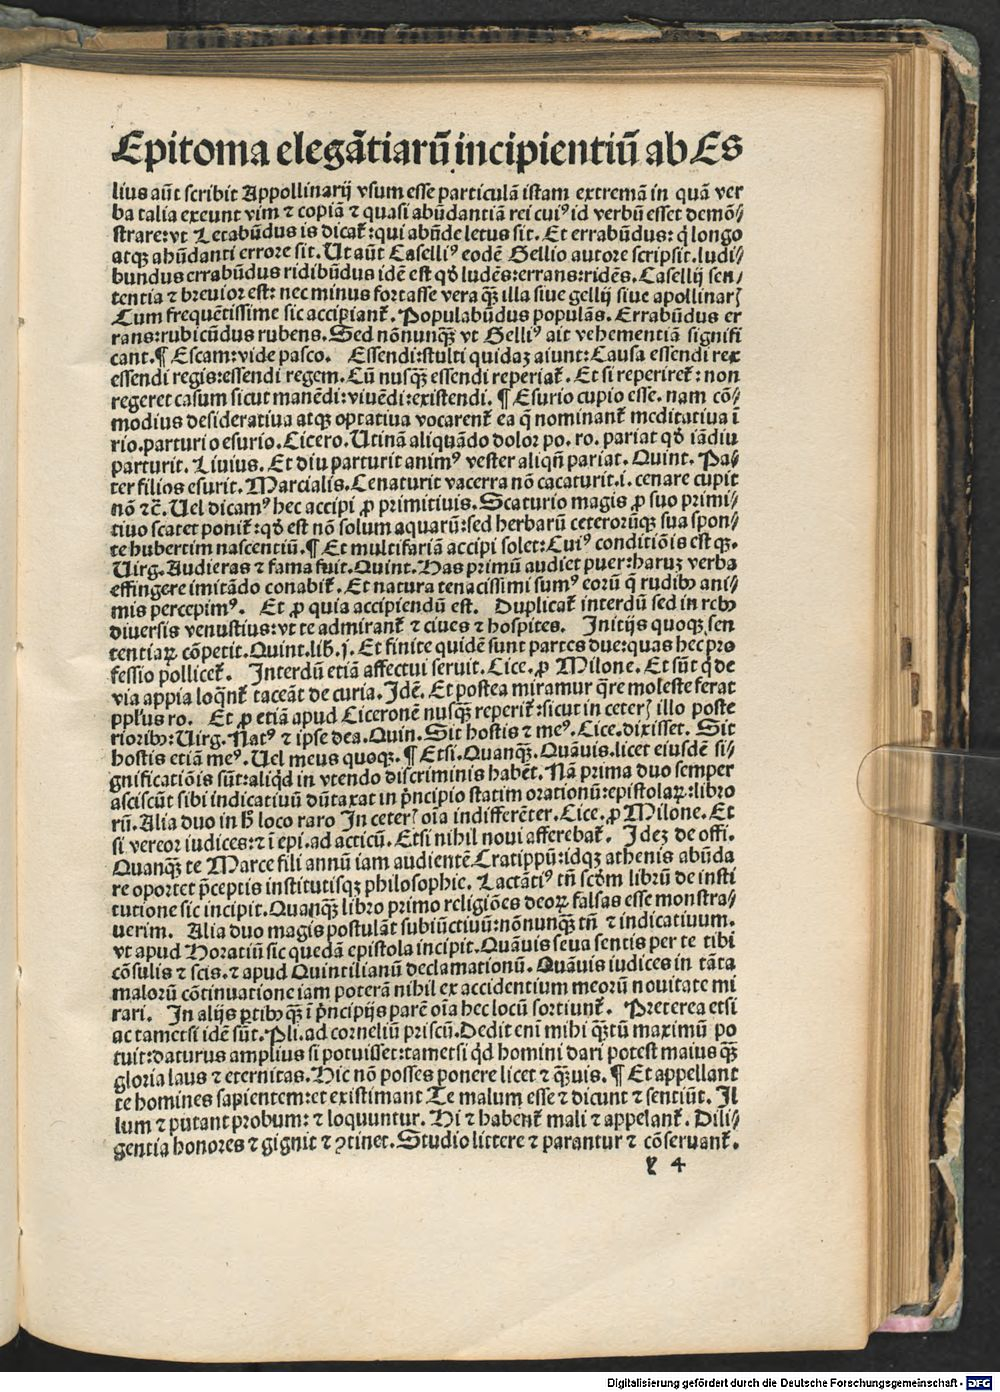 Epitoma elegãtiarũ incipientiũ ab Es
lius aũt scribit Appollinarij vsum esse particulã istam extremã in quã ver
ba talia exeunt vim ⁊ copiã ⁊ quasi abũdantiã rei cuiꝰ id verbũ esset demõ⸗
strare: vt Letabũdus is dicat᷑: qui abũde letus sit. Et errabũdus: q̇ longo
atqꝫ abũdanti errore sit. Ut aũt Caselliꝰ eodẽ Gellio autore scripsit. ludi⸗
bundus errabũdus ridibũdus idẽ est qḋ ludẽs: errans: ridẽs. Casellij sen⸗
tentia ⁊ breuior est: nec minus fortasse vera qꝫ̃ illa siue gellij siue apollinarꝭ
Cum frequẽtissime sic accipiant᷑. Populabũdus populãs. Errabũdus er
rans: rubicũdus rubens. Sed nõnunqꝫ̃ vt Gelliꝰ ait vehementiã signifi
cant. ¶ Escam: vide pasco. Essendi: stulti quidaꝫ aiunt: Causa essendi rex
essendi regis: essendi regem. Cũ nusqꝫ̃ essendi reperiat᷑. Et si reperiret᷑: non
regeret casum sicut manẽdi: viuẽdi: existendi. ¶ Esurio cupio esse. nam cõ⸗
modius desideratiua atqꝫ optatiua vocarent᷑ ea q̃ nominant᷑ meditatiua ĩ
rio. parturio esurio. Cicero. Utinã aliquãdo dolor po. ro. pariat qḋ iãdiu
parturit. Liuius. Et diu parturit animꝰ vester aliqñ pariat. Quint. Pa⸗
ter filios esurit. Marcialis. Cenaturit vacerra nõ cacaturit. i. cenare cupit
nõ ⁊c̃. Uel dicamꝰ hec accipi ꝓ primitiuis. Scaturio magis ꝓ suo primi⸗
tiuo scatet ponit᷑: qḋ est nõ solum aquarũ: sed herbarũ ceterorũqꝫ sua spon⸗
te hubertim nascentiũ. ¶ Et multifariã accipi solet: Cuiꝰ conditiõis est qꝫ.
Uirg. Audieras ⁊ fama fuit. Quint. Has primũ audiet puer: haruꝫ verba
effingere imitãdo conabit᷑. Et natura tenacissimi sumꝰ eorũ q̃ rudibꝰ ani⸗
mis percepimꝰ. Et ꝓ quia accipiendũ est. Duplicat᷑ interdũ sed in rebꝰ
diuersis venustius: vt te admirant᷑ ⁊ ciues ⁊ hospites. Initijs quoqꝫ sen
tentiaꝝ cõpetit. Quint. lib̃. j. Et finite quidẽ sunt partes due: quas hec pro
fessio pollicet᷑. Interdũ etiã affectui seruit. Cice. ꝓ Milone. Et sũt q̇ de
via appia loqñt᷑ taceãt de curia. Idẽ. Et postea miramur q̃re moleste ferat
pplus ro. Et ꝓ etiã apud Ciceronẽ nusqꝫ̃ reperit᷑: sicut in ceterꝭ illo poste
rioribꝰ: Uirg. Natꝰ ⁊ ipse dea. Quin. Sit hostis ⁊ meꝰ. Cice. dixisset. Sit
hostis etiã meꝰ. Uel meus quoqꝫ. ¶ Etsi. Quanqꝫ̃. Quãuis. licet eiusdẽ si⸗
gnificatiõis sũt: aliqḋ in vtendo discriminis habẽt. Nã prima duo semper
asciscũt sibi indicatiuũ dũtaxat in p̃ncipio statim orationũ: epistolaꝝ: libro
rũ. Alia duo in h̃ loco raro In ceterꝭ oĩa indifferẽter. Cice. ꝓ Milone. Et
si vereor iudices: ⁊ ĩ epi. ad acticũ. Etsi nihil noui afferebat᷑. Ideꝫ de offi.
Quanqꝫ̃ te Marce fili annũ iam audientẽ Cratippũ: idqꝫ athenis abũda
re oportet p̃ceptis institutisqꝫ philosophie. Lactãtiꝰ tñ scḋm librũ de insti
tutione sic incipit. Quanqꝫ̃ libro primo religiões deoꝝ falsas esse monstra⸗
uerim. Alia duo magis postulãt subiũctiuũ: nõnunqꝫ̃ tñ ⁊ indicatiuum.
vt apud Horatiũ sic quedã epistola incipit. Quãuis seua sentis per te tibi
cõsulis ⁊ scis. ⁊ apud Quintilianũ declamationũ. Quãuis iudices in tãta
malorũ cõtinuatione iam poterã nihil ex accidentium meorũ nouitate mi
rari. In alijs ꝑtibꝰ qꝫ̃ ĩ p̃ncipijs parẽ oĩa hec locũ sortiunt᷑. Preterea etsi
ac tametsi idẽ sũt. Pli. ad corneliũ priscũ. Dedit enĩ mihi qꝫ̃tũ maximũ po
tuit: daturus amplius si potuisset: tametsi q̇d homini dari potest maius qꝫ̃
gloria laus ⁊ eternitas. Hic nõ posses ponere licet ⁊ qꝫ̃uis. ¶ Et appellant
te homines sapientem: et existimant Te malum esse ⁊ dicunt ⁊ sentiũt. Il
lum ⁊ putant probum: ⁊ loquuntur. Hi ⁊ habent᷑ mali ⁊ appelant᷑. Dili⸗
gentia honores ⁊ gignit ⁊ ꝯtinet. Studio littere ⁊ parantur ⁊ cõseruant᷑.
4
Digitalisierung gefördert durch die Deutsche Forschungsgemeinschaft - DFG